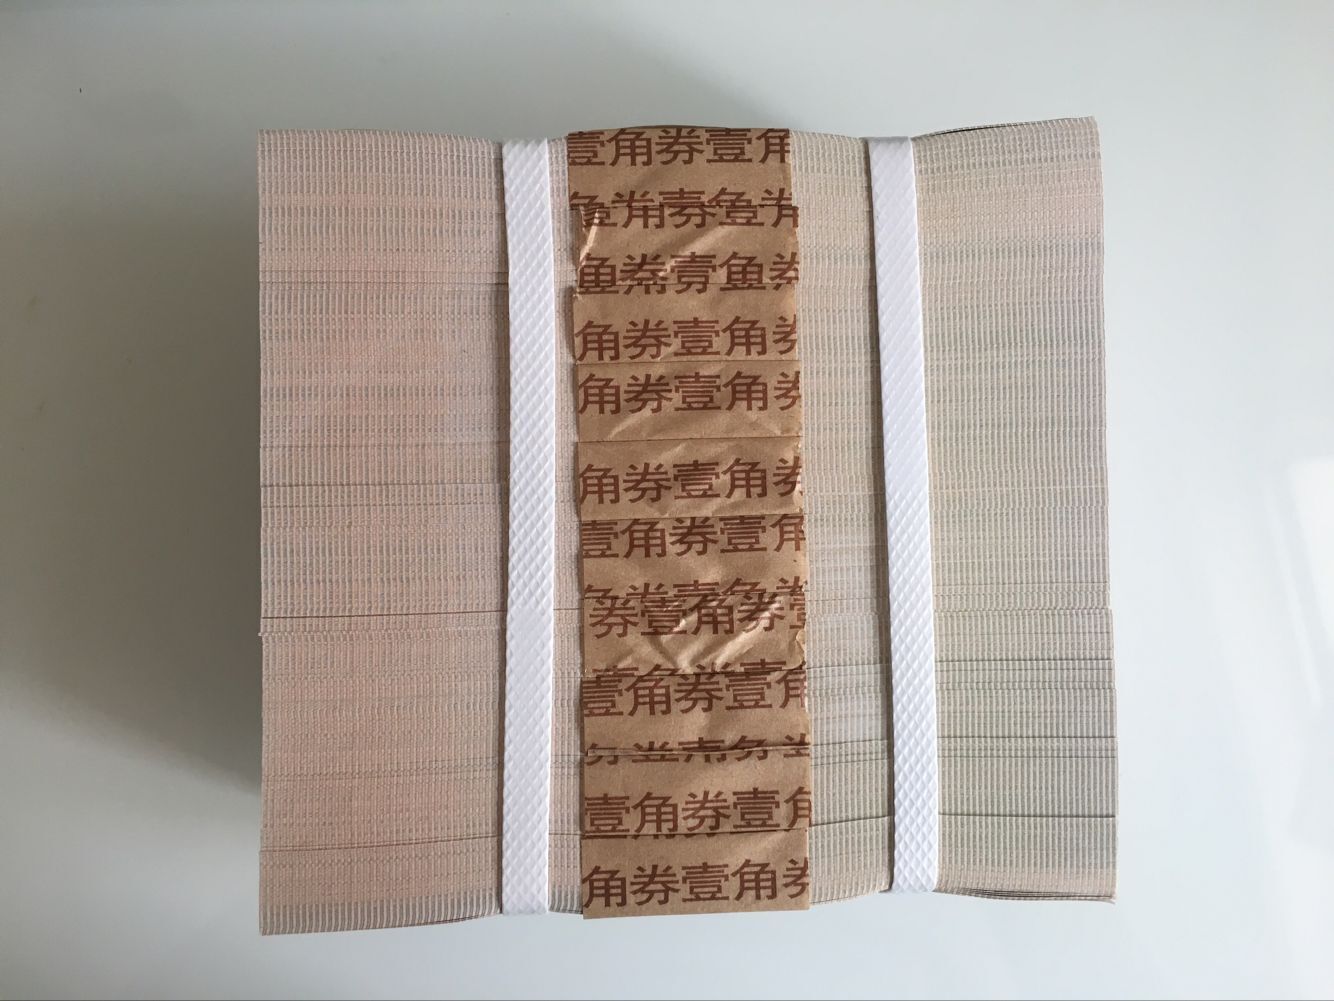 壹角券壹角
角券壹角
角券壹角
角券壹角
壹角券壹角
券壹角券
壹角券壹角
壹角券壹角
角券壹角